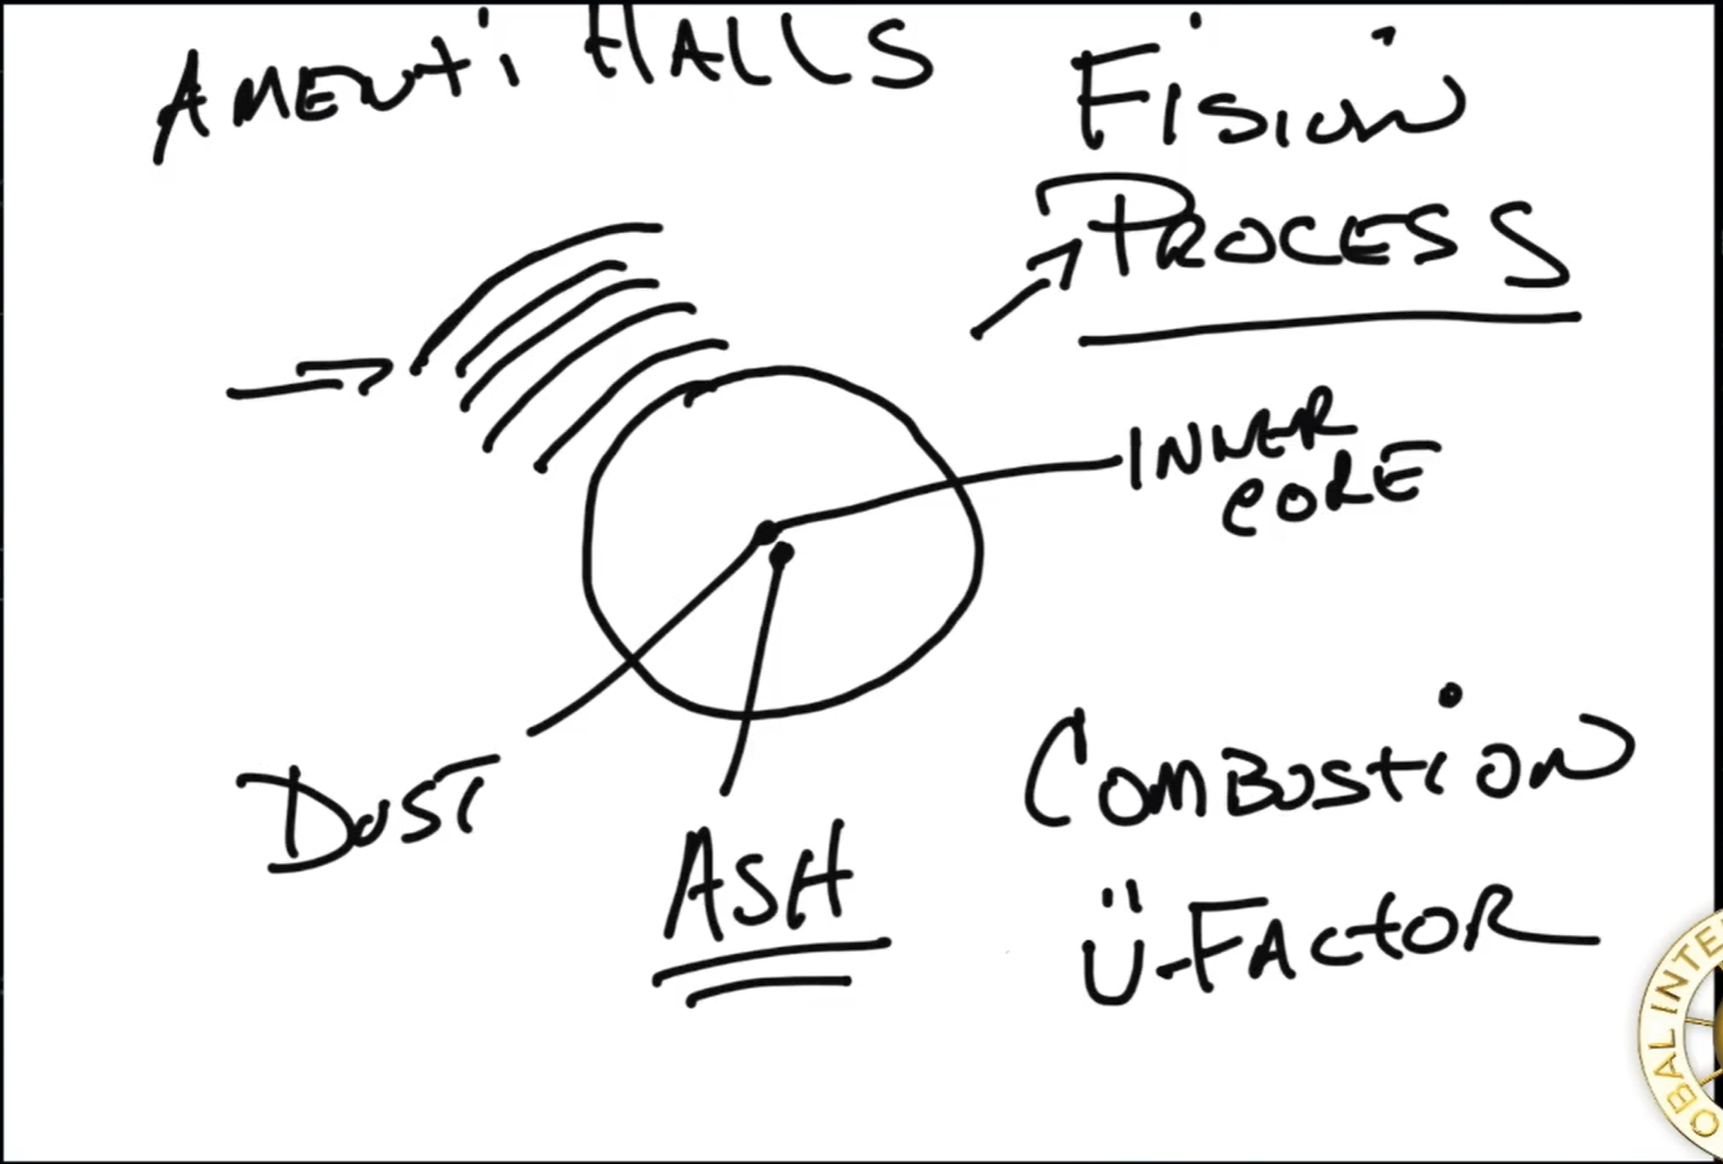 AMENTi HALLS
FISION
PROCESS
INNER
CORE
DUST
ASH
COMBUSTiON
Ü-FACTOR
OBAL INTE